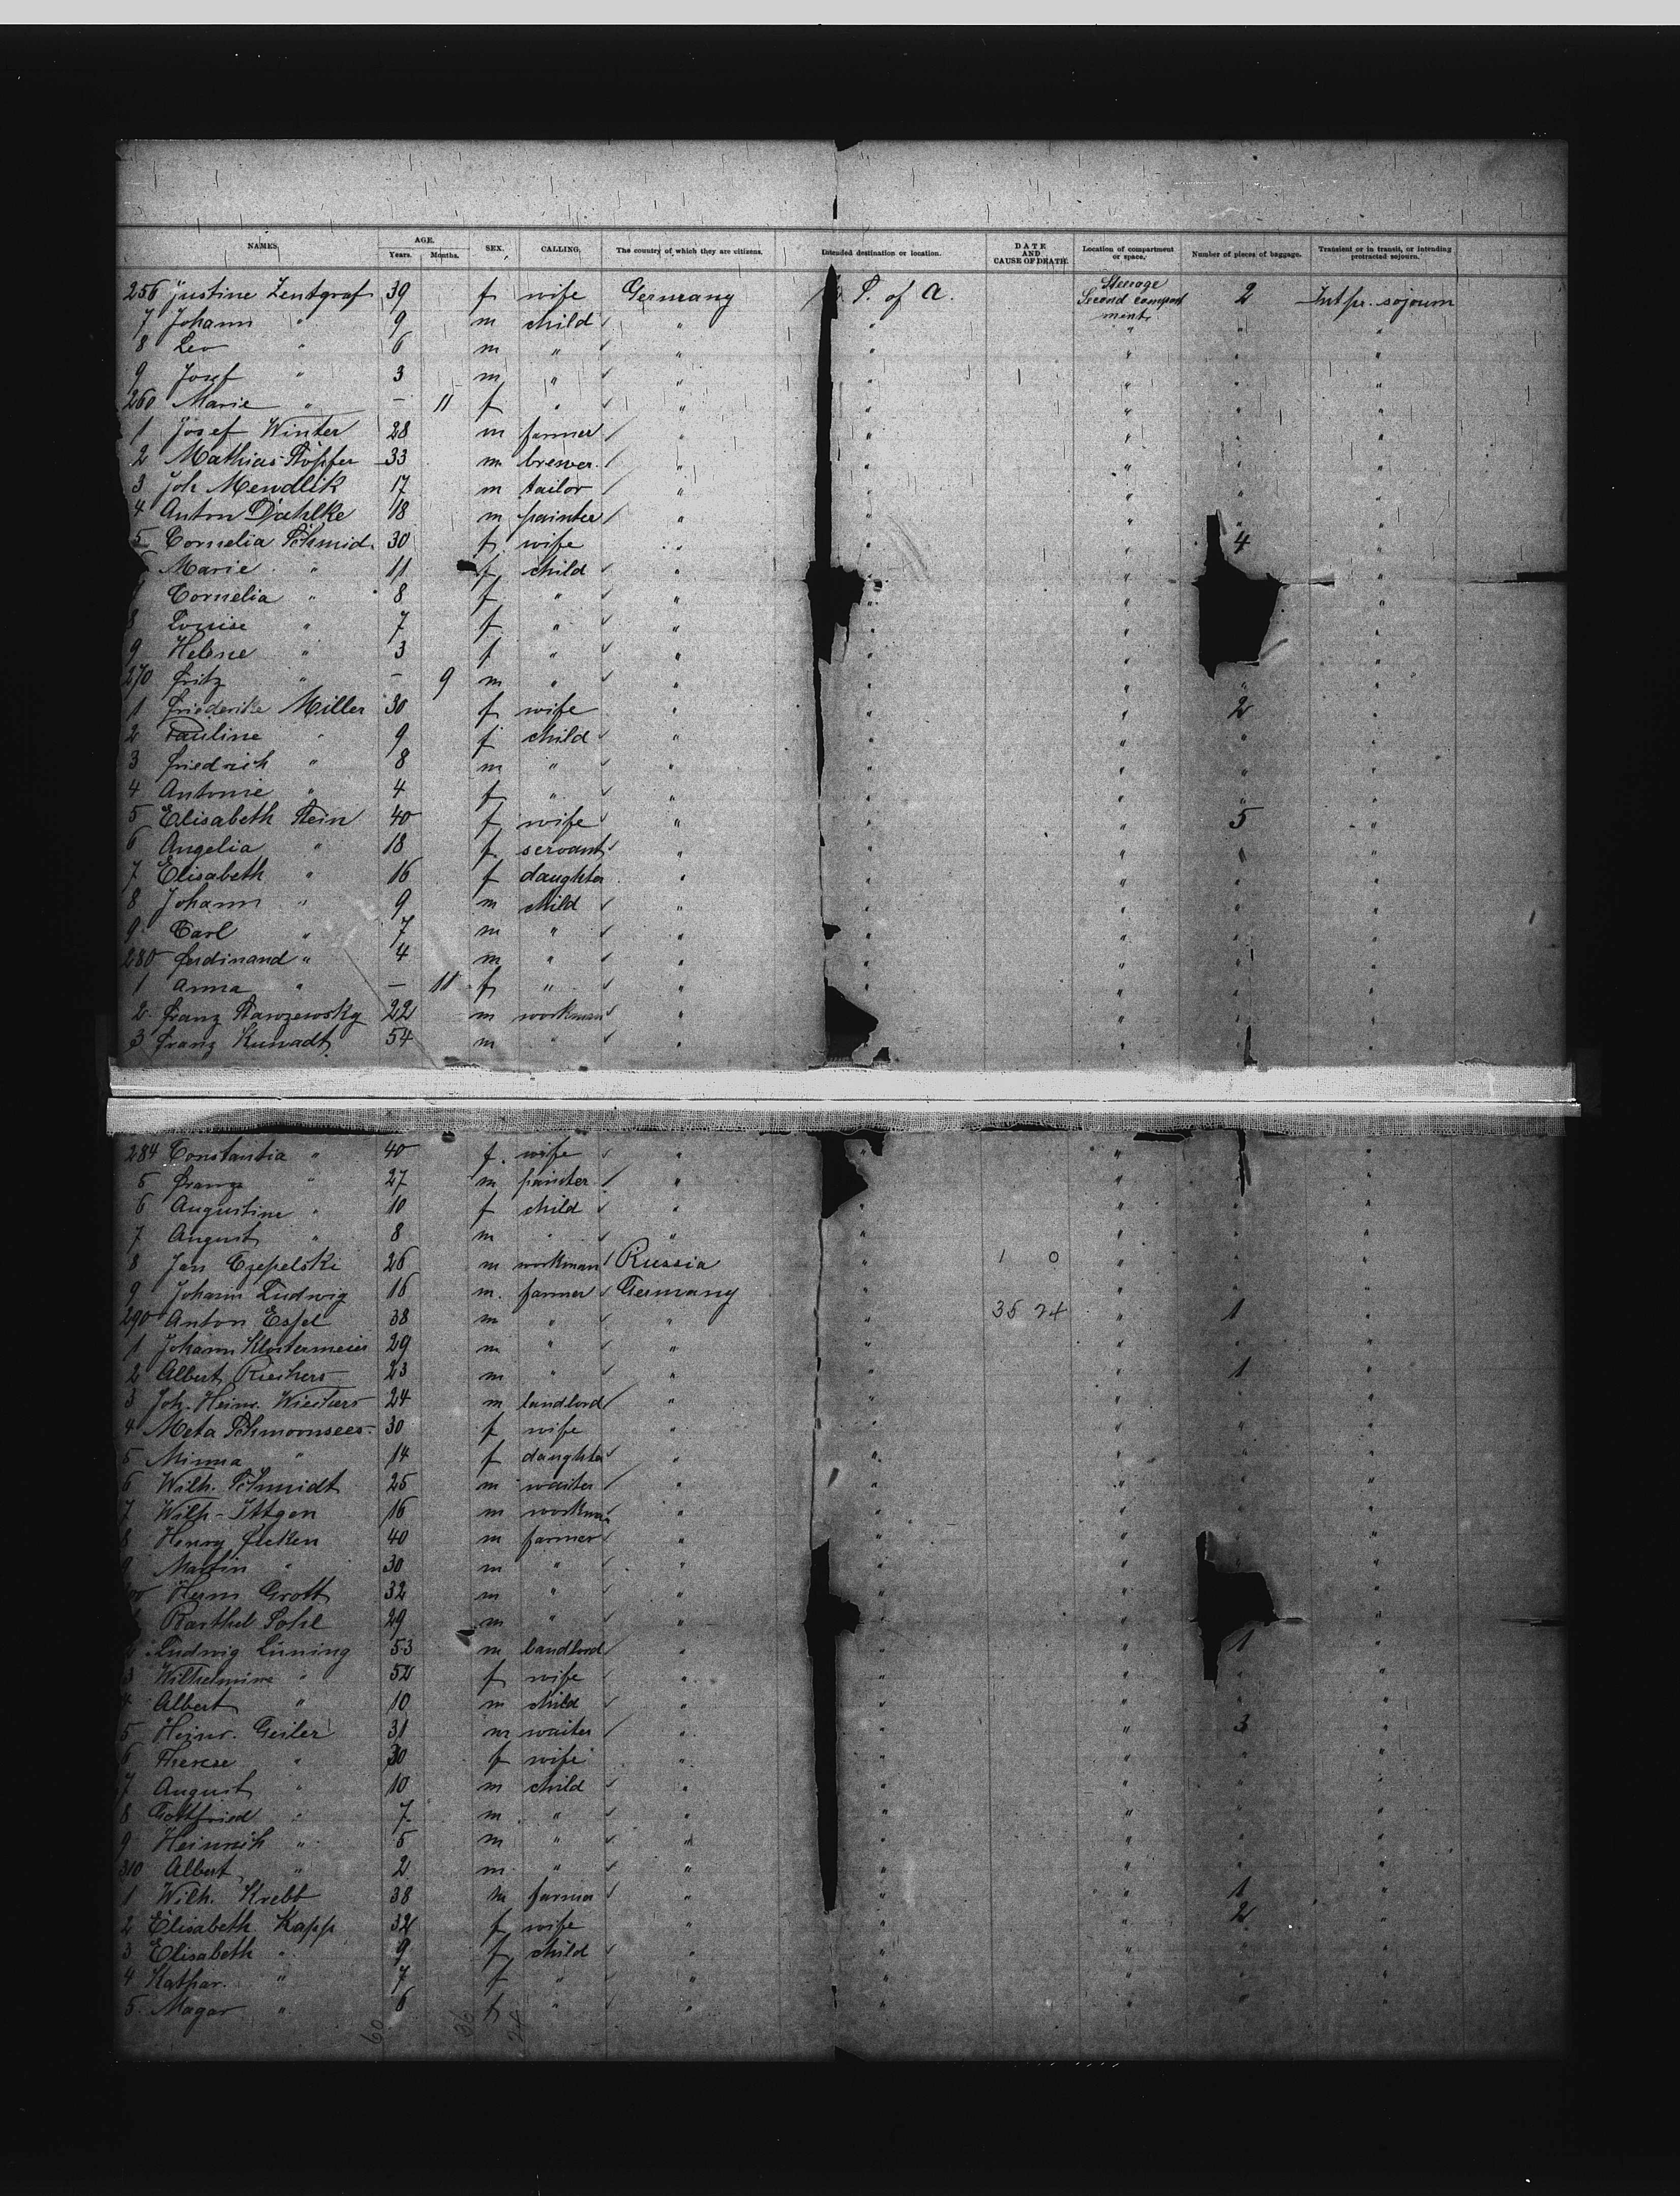 NAMES. AGE. Years. Months. SEX. CALLING. The country of which they are citizens. Intended destination or location. DATE AND CAUSE OF DEATH. Location of compartment or space. Number of pieces of baggage. Transient or in transit, or intending protracted sojourn.
256 Justine Zentgraf 39 f wife Germany S. of A. Steerage Second compartment 2 Int pr. sojourn
7 Johann " 9 m child " " " " "
8 Leo " 6 m " " " " "
9 Josef " 3 m " " " " " "
260 Marie " – 11 f " " " " " "
1 Josef Winter 28 m farmer " " " " "
2 Mathias Töpfer 33 m brewer " " " " "
3 Joh Mendlik 17 m tailor " " " " "
4 Anton Dahlke 18 m painter " " " " "
5 Cornelia Schmid 30 f wife " " " 4 "
Marie " 11 f child " " " "
Cornelia " 8 f " " " " "
8 Louise " 7 f " " " " "
9 Helene " 3 f " " " " "
270 Fritz " – 9 m " " " " " "
1 Friederike Miller 30 f wife " " " 2 "
2 Pauline " 9 f child " " " " "
3 Friedrich " 8 m " " " " " "
4 Antonie " 4 f " " " " " "
5 Elisabeth Stein 40 f wife " " " 5 "
6 Angelia " 18 f servant " " " " "
7 Elisabeth " 16 f daughter " " " " "
8 Johann " 9 m child " " " " "
9 Carl " 7 m " " " " " "
280 Ferdinand " 4 m " " " " " "
1 Anna " – 11 f " " " " " "
2 Franz 22 m workman " " " " "
3 Franz Kunadt 54 m " " " "
284 Constantia " 40 f. wife " " " "
5 Franz " 27 m painter " " " "
6 Augustine " 10 f child " " " " "
7 August " 8 m " " " " " "
8 Jan Czepelski 26 m workman Russia " 1 0 " " "
9 Johann Ludwig 16 m. farmer Germany " " " "
290 Anton Essel 38 m " " " 35 24 " 1 "
1 Johann Klostermeier 29 m " " " " " "
2 Albert Riechers 23 m " " " " 1 "
3 Joh. Heinr. Wiechers 24 m landlord " " " " "
4 Meta Schmoonsees 30 f wife " " " " "
5 Minna " 14 f daughter " " " " "
6 Wilh. Schmidt 25 m waiter " " " " "
7 Wilh. Ittgen 16 m workman " " " " "
8 Henry Ficken 40 m farmer " " " " "
Martin " 30 m " " " " " "
Herm Grott 32 m " " " " "
Barthel Pohl 29 m " " " " "
Ludwig Lüning 53 m landlord " " 1 "
3 Wilhelmine " 52 f wife " " " "
4 Albert " 10 m child " " " " "
5 Heinr. Geiler 31 m waiter " " " 3 "
6 Therese " 30 f wife " " " " "
7 August " 10 m child " " " " "
8 Gottfried " 7 m " " " " " "
9 Heinrich " 5 m " " " " " "
310 Albert " 2 m " " " " " "
1 Wilh. Krebb 38 m farmer " " " 1 "
2 Elisabeth Kapp 32 f wife " " " 2 "
3 Elisabeth " 9 f child " " " " "
4 Kathar. " 7 f " " " " " "
5 Magar " 6 f " " " " " "
60 36 24